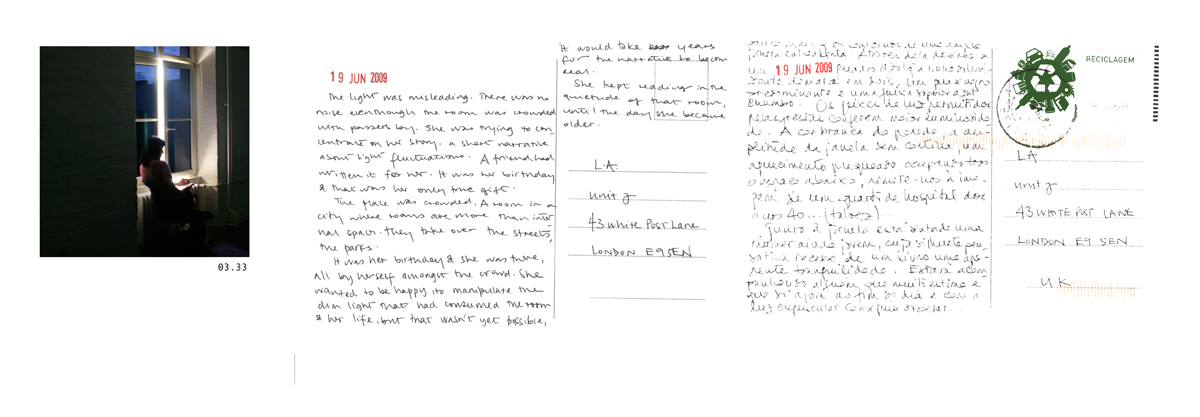 03.33
19 JUN 2009
The light was misleading. There was no
noise eventhough the room was crowded
with passers by. She was trying to con
centrate on her story. a short narrative
about light fluctuations. A friend had
written it for her. It was her birthday
& that was her only true gift.
The place was crowded. A room in a
city where rooms are more than inter
nal spaces. they take over the streets,
the parks.
It was her birthday & she was there,
all by herself amongst the crowd. She
wanted to be happy, to manipulate the
dim light that had consumed the room
& her life, but that wasn't yet possible,
It would take years
for the narrative to become
real.
She kept reading in the
quietude of that room,
until the day she became
older.
LA
unit J
43 White Post Lane
LONDON E9 5EN
19 JUN 2009
chumbo. Os pixeis de luz permitidos
conferem maior luminosida-
de. A cor branca da parede, a am-
plitude da janela sem cortina, um
aquecimento pequeado ocupando todo
o espaço abaixo, remete-nos à ima-
gem de um quarto de hospital dos
anos 40... (talvez).
Junto à janela está sentada uma
mulher ainda jovem, cuja silhueta pen-
sativa recebe de um livro uma apa-
rente tranquilidade. Estará acom-
panhada alguém que muito estima e
que
luz crepuscular
RECICLAGEM
LA
unit J
43 WHITE POST LANE
LONDON E9 5EN
UK